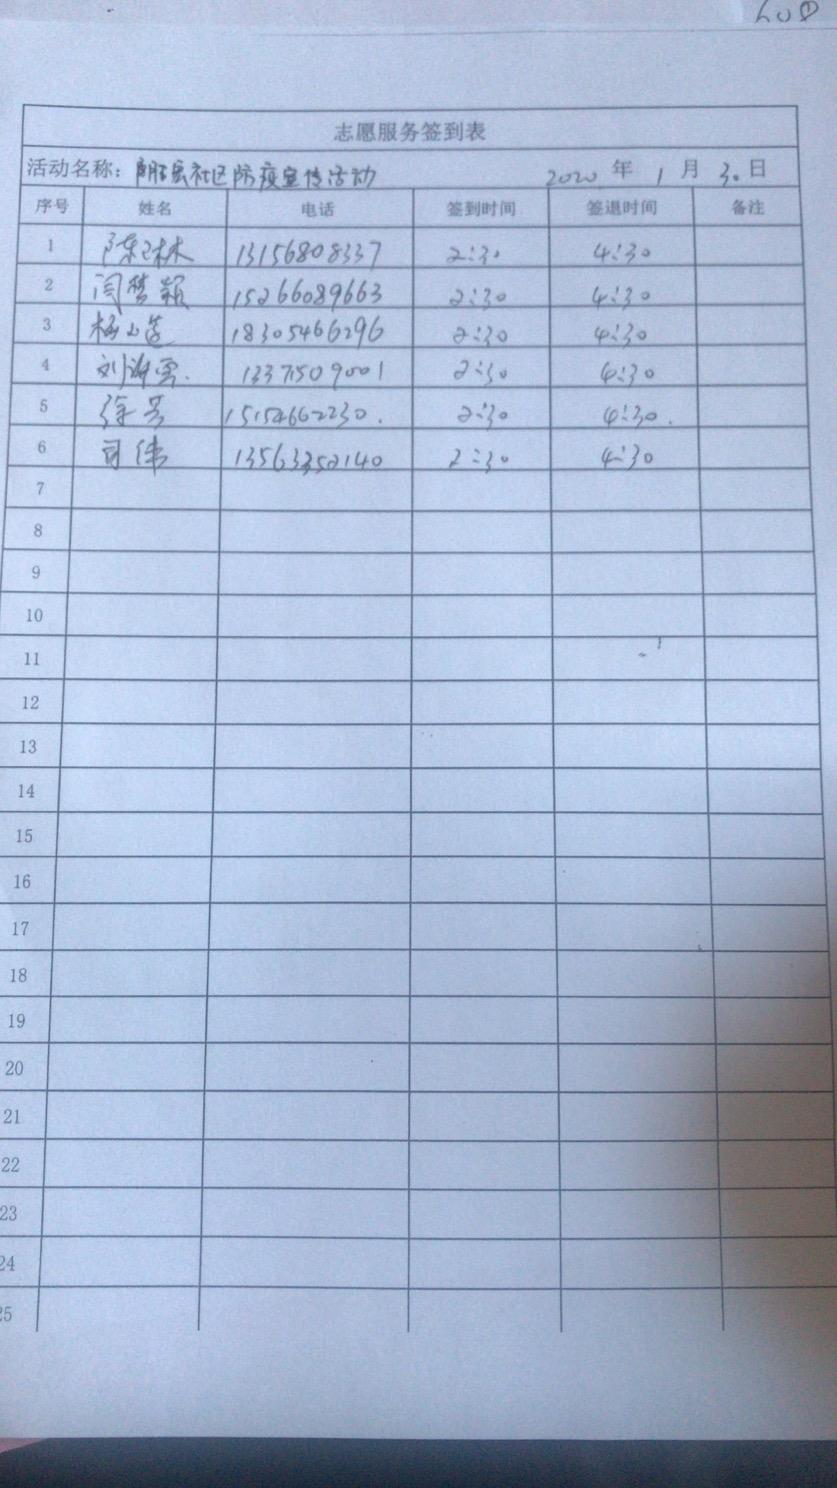 志愿服务签到表
活动名称：社区防疫宣传活动 2020 年 1 月 30 日
序号 姓名 电话 签到时间 签退时间 备注
1 13156808337 2:30 4:30
2 闫梦颖 15266089663 2:30 4:30
3 18305466296 2:30 4:30
4 刘 13371509001 2:30 4:30
5 徐芳 15154662230. 2:30 4:30.
6 司伟 13563352140 2:30 4:30
7
8
9
10
11
12
13
14
15
16
17
18
19
20
21
22
23
24
25